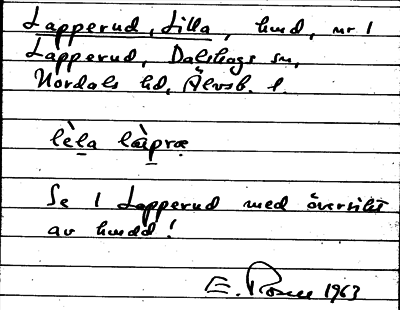 Lapperud, Lilla, hmd, nr 1
Lapperud, Dalskogs sn,
Nordals hd, Älvsb. l.
lèla làpræ
Se 1 Lapperud med översikt
av hmdd!
E. 1963